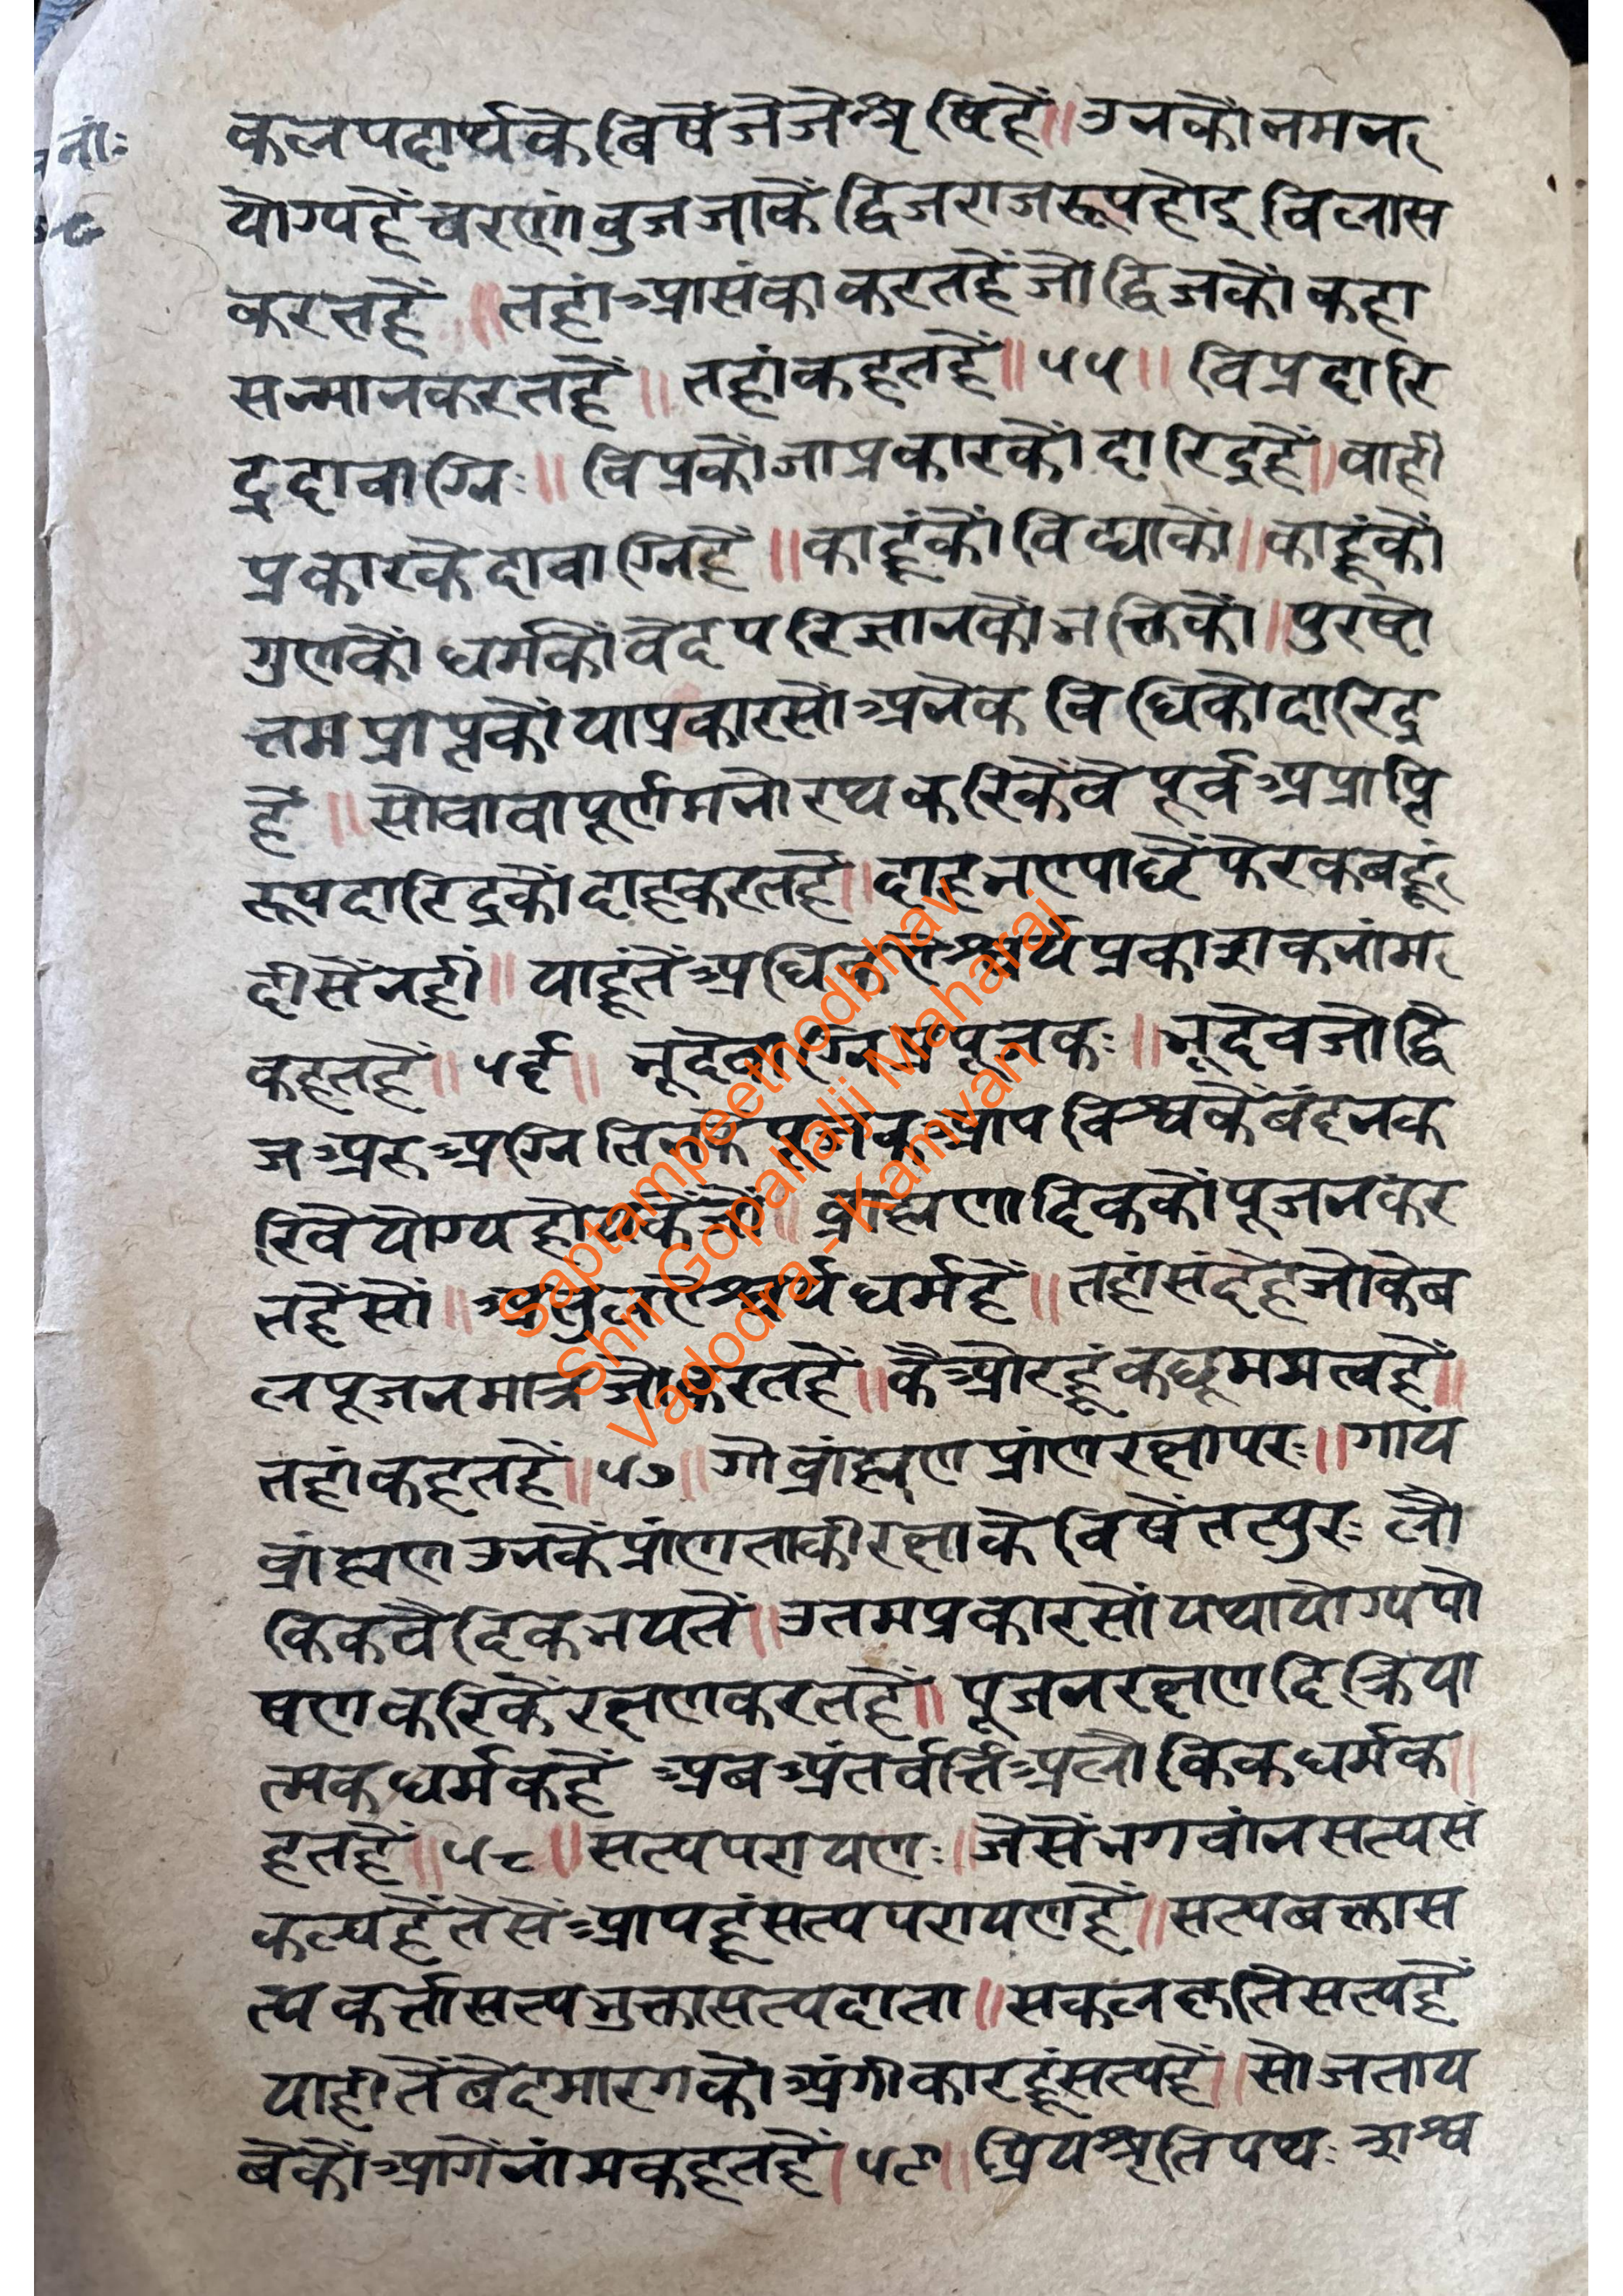 नां:
कल पदार्थ के बिषें जे जे श्रृषि हें ॥ उनकों नमन
योग्य हें चरणांबुज जाकें द्विजराज रूप होइ विलास
करत हें ॥ तहां आसंका करत हें जो द्विजकों कहा
सन्मान करत हें ॥ तहां कहत हें ॥ ५५ ॥ विप्रदारि
द्रदावाग्निः ॥ विप्रकों जा प्रकारकों दारिद्र हें ॥ वाही
प्रकारके दावाग्नि हें ॥ काहूंकों विद्याकों ॥ काहूंकों
गुणकों धर्मकों वेद परिज्ञानकों भक्तिकों ॥ पुरषो
त्तम प्राप्तकों या प्रकारसों अनेक विधिको दारिद्र
हें ॥ सो वा वा पूर्ण मनोरथ करिकें वे पूर्व अप्राप्ति
रूप दारिद्रकों दाह करत हें ॥ दाह भए पाछें फेर कबहूं
दीसें नही ॥ याहूंतें अधिक ऐश्वर्य प्रकाशक नांम
कहत हें ॥ ५६ ॥ भूदेवाग्निप्रपूजकः ॥ भूदेव जो द्वि
ज अरु अग्नि तिनके पूजक आप विश्वकें बंदन क
रिवे योग्य होयकें जों ॥ ब्राह्मणादिककों पूजन कर
त हें सों ॥ अतुल ऐश्वर्य धर्म हें ॥ तहां संदेह जो केब
ल पूजन मात्र जो करत हें ॥ कें ओरहूं कछू ममत्व हें ॥
तहां कहत हें ॥ ५७ ॥ गोब्रांह्मणप्रांणरक्षापरः ॥ गाय
ब्रांह्मण उनकें प्रांण ताकी रक्षाके विषें तत्पुरः लौ
किक वैदिक भयतें ॥ उतम प्रकारसों यथायोग्य पो
षण करिकें रक्षण करत हें ॥ पूजन रक्षणदि क्रिया
त्मक धर्म कहें अब अंतर्वर्त्ति अलौकिक धर्म क ॥
हत हें ॥ ५८ ॥ सत्यपरायणः ॥ जेसें भगवांन सत्यसं
कल्प हें तेसें आपहूं सत्यपरायण हें ॥ सत्य बक्तास
त्य कर्त्ता सत्य भुक्ता सत्यदाता ॥ सकल कृति सत्य हें
याही तें बेदमारगकों अंगीकारहूं सत्य हें ॥ सो जताय
बेकों आगें नांम कहत हें । ५९ ॥ प्रियश्रृतिपथः शश्व
Saptampeethodbhav
Shri Gopallalji Maharaj
Vadodra - Kamvan